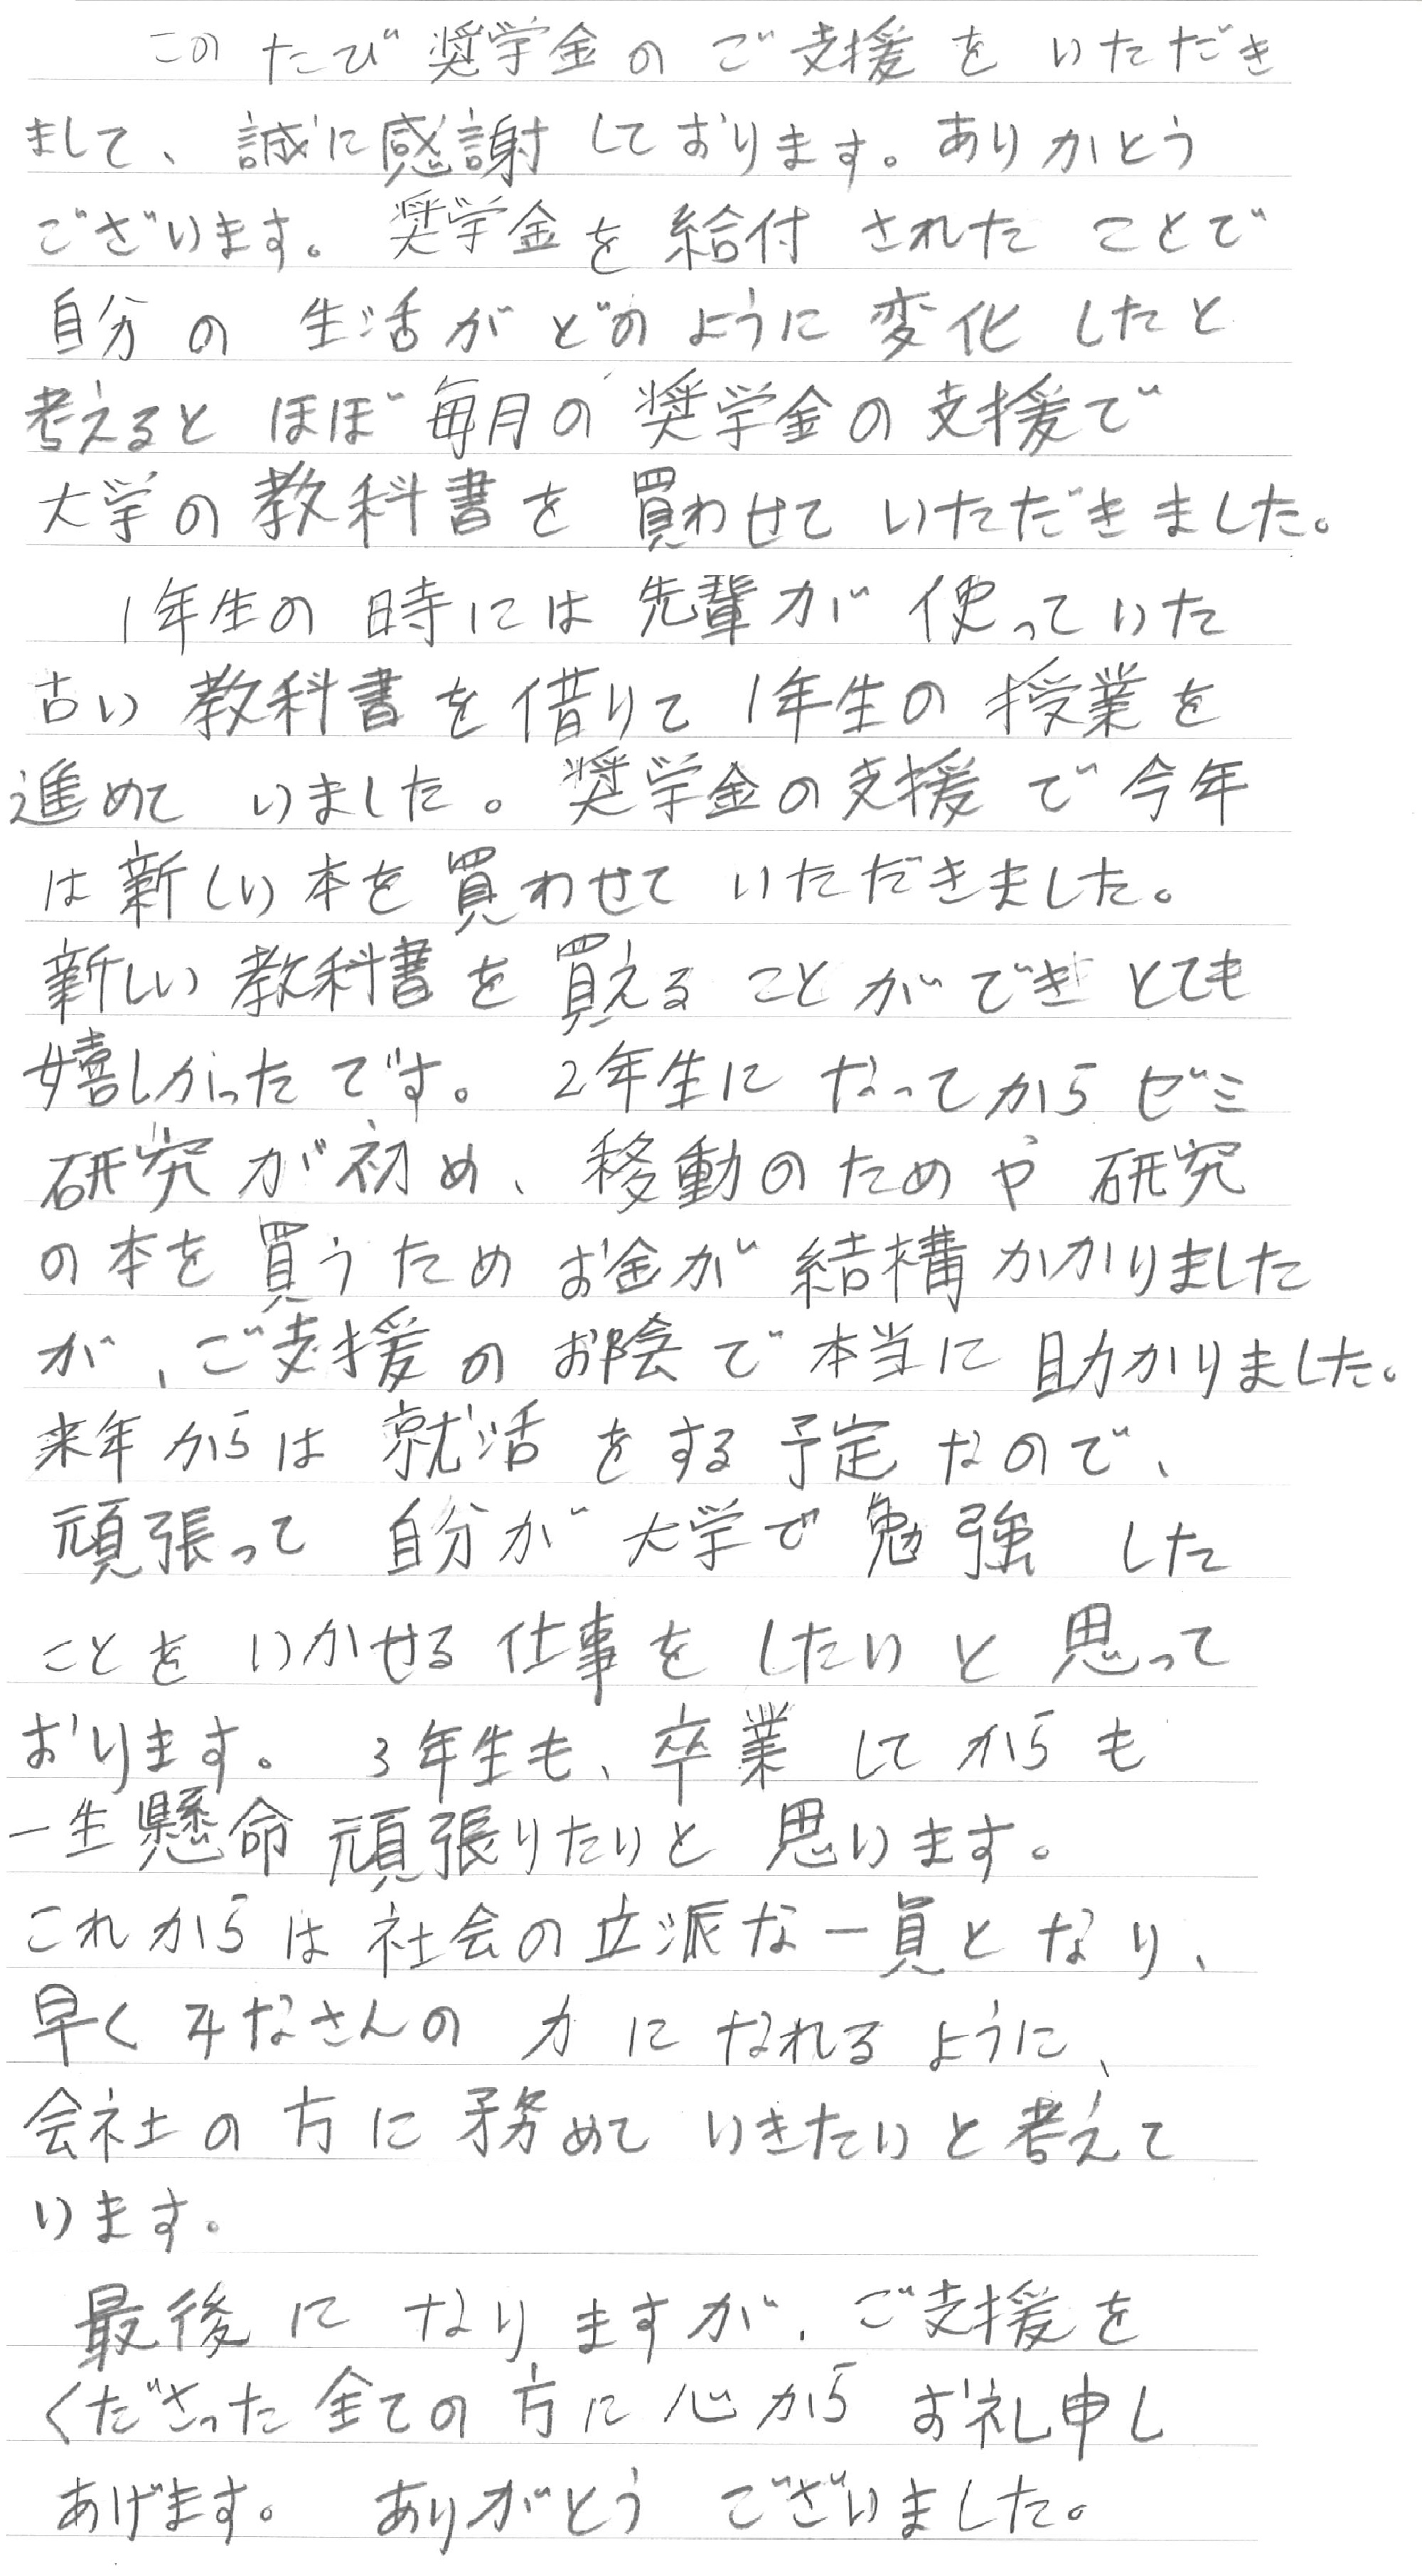 このたび奨学金のご支援をいただき
まして、誠に感謝しております。ありかとう
ございます。奨学金を給付されたことで
自分の生活がどのように変化したと
考えるとほぼ毎月の奨学金の支援で
大学の教科書を買わせていただきました。
1年生の時には先輩が使っていた
古い教科書を借りて1年生の授業を
進めていました。奨学金の支援で今年
は新しい本を買わせていただきました。
新しい教科書を買えることができとても
嬉しかったです。2年生になってからゼミ
研究が初め、移動のためや研究
の本を買うためお金が結構かかりました
が、ご支援のお陰で本当に助かりました。
来年からは就活をする予定なので、
頑張って自分が大学で勉強した
ことをいかせる仕事をしたいと思って
おります。3年生も、卒業してからも
一生懸命頑張りたいと思います。
これからは社会の立派な一員となり、
早くみなさんの力になれるように、
会社の方に務めていきたいと考えて
います。
最後になりますが、ご支援を
くださった全ての方に心からお礼申し
あげます。ありがとうございました。